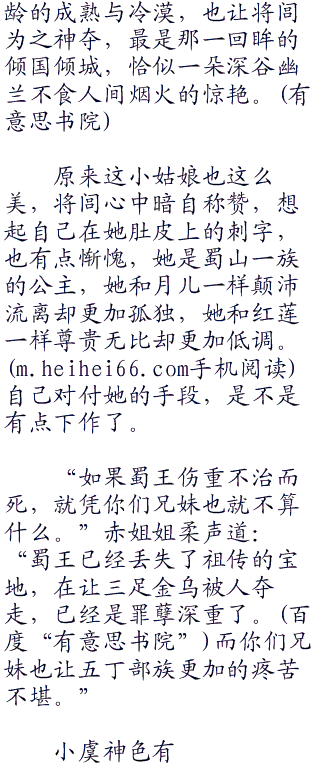 龄的成熟与冷漠，也让将闾
为之神夺，最是那一回眸的
倾国倾城，恰似一朵深谷幽
兰不食人间烟火的惊艳。(有
意思书院)
原来这小姑娘也这么
美，将闾心中暗自称赞，想
起自己在她肚皮上的刺字，
也有点惭愧，她是蜀山一族
的公主，她和月儿一样颠沛
流离却更加孤独，她和红莲
一样尊贵无比却更加低调。
(m.heihei66.com手机阅读)
自己对付她的手段，是不是
有点下作了。
“如果蜀王伤重不治而
死，就凭你们兄妹也就不算
什么。”赤姐姐柔声道：
“蜀王已经丢失了祖传的宝
地，在让三足金乌被人夺
走，已经是罪孽深重了。(百
度“有意思书院”)而你们兄
妹也让五丁部族更加的疼苦
不堪。”
小虞神色有